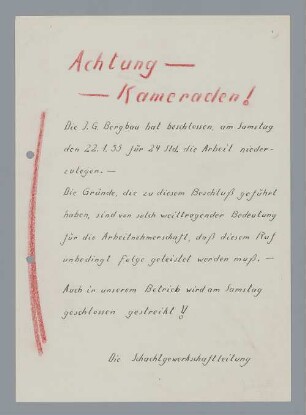 Achtung —
— Kameraden!
Die I.G. Bergbau hat beschlossen, am Samstag
den 22.1.55 für 24 Std. die Arbeit nieder-
zulegen. —
Die Gründe, die zu diesem Beschluß geführt
haben, sind von solch weittragender Bedeutung
für die Arbeitnehmerschaft, daß diesem Ruf
unbedingt Folge geleistet werden muß. —
Auch in unserem Betrieb wird am Samstag
geschlossen gestreikt!!
Die Schachtgewerkschaftleitung